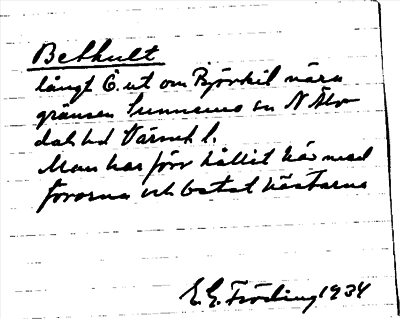 Bethult
långt Ö. ut om Björkil nära
gränsen Sunnemo sn N Älv
dals hd Värml l.
Man har förr hållit här med
fororna och betat hästarna
E. G. Fröding 1934